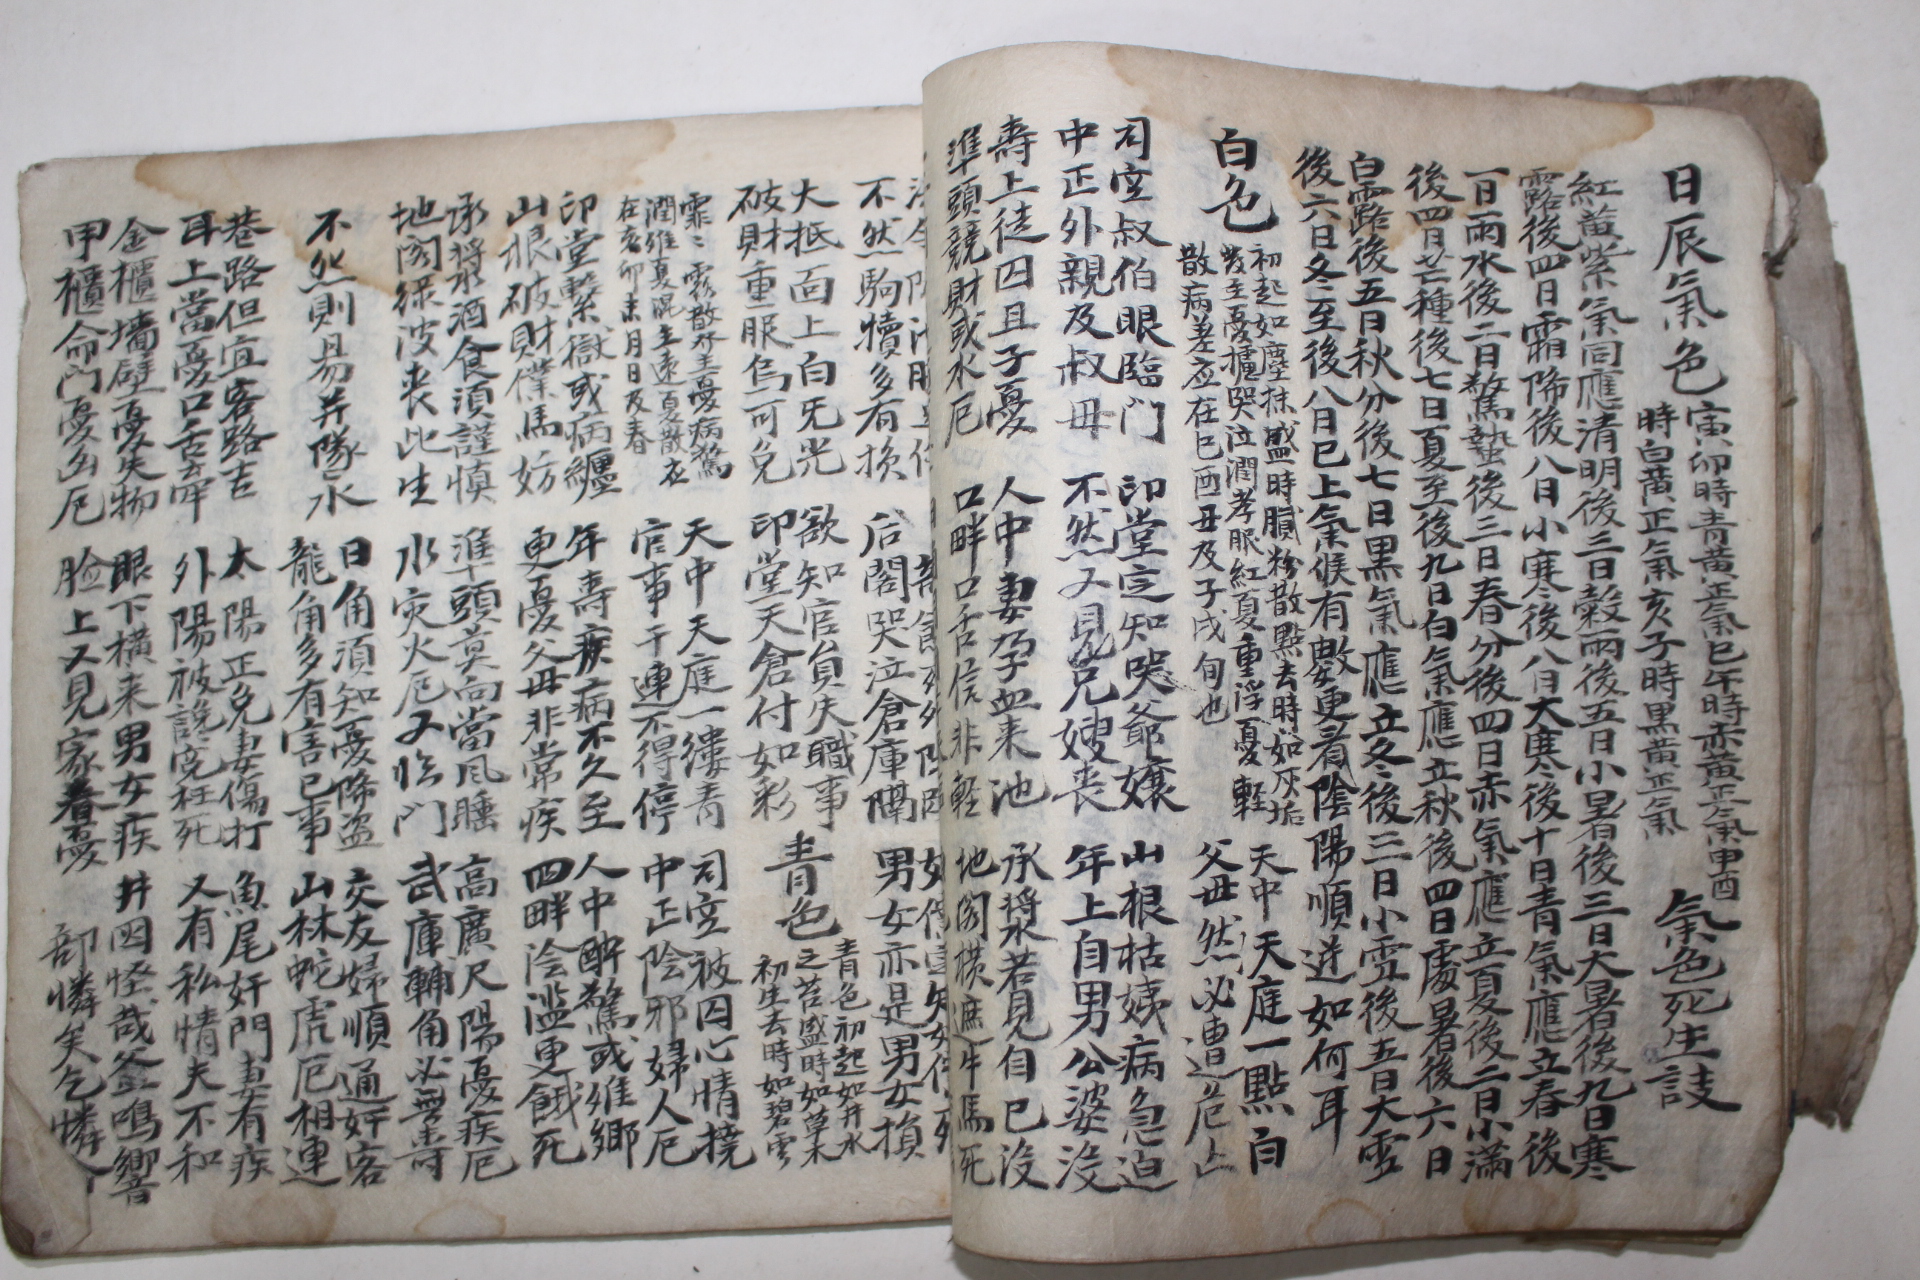 日辰氣色 寅卯時青黃正氣巳午時赤黃正氣申酉
時白黃正氣亥子時黑黃正氣 氣色死生訣
紅黃紫氣同應清明後三日穀雨後五日小暑後三日大暑後九日寒
露後四日霜降後八日小寒後八日大寒後十日青氣應立春後
一日雨水後二日驚蟄後三日春分後四日赤氣應立夏後二日小滿
後四日芒種後七日夏至後九日白氣應立秋後四日處暑後六日
白露後五日秋分後七日黑氣應立冬後三日小雪後五日大雪
後六日冬至後八日已上氣候有數更看陰陽順逆如何耳
白色 初起如塵抹盛時膩粉散點去時如灰垢
發主憂擾哭泣潤孝服紅夏重浮憂輕
散病差应在巳酉丑及子戌旬也
天中天庭一點白
父母然必遭厄
司空叔伯眼臨門 印堂定知哭爺孃 山根枯姨病急迫
中正外親及叔母 不然又見兄嫂喪 年上自男公婆沒
壽上徒囚且子憂 人中妻孕血来池 承將若見自已沒
準頭競財或水厄 口畔口舌信非軽 地阁横遮牛馬死
不然駒犢多有損 后閣哭泣倉庫隔 男女亦是男女損
大抵面上白旡光 欲知官負失職事
破財重服烏可免 印堂天倉付如彩
青色 青色初起如井水
之苔盛時如草木
初生去時如碧雲
霏〻霧散外主憂病驚
潤維夏混主遠夏散应
在亥卯未月日及春
天中天庭一縷青 司空被囚心情撓
官事干連不得停 中正陰邪婦人厄
印堂繫獄或病纏 年壽疾病不久至 人中醉驚或維鄉
山根破財僕馬妨 更憂父母非常疾 四畔陰濫更餓死
承將水酒食須謹慎 準頭莫向當风睡 高廣尺陽憂疾厄
地阁緑波喪此生 水灾火厄又臨門 武庫輔角必無壽
日角須知憂降盜 交友婦順通奸客
不然則易井隊水 龍角多有害已事 山林蛇虎厄相連
巷路但宜客路吉 太陽正免妻傷打 魚尾奸門妻有疾
耳上當憂口舌牢 外陽被讒寃枉死 又有私情夫不和
金櫃墻壁憂失物 眼下横来男女疾 井囚怪哉釜鳴響
甲櫃命門憂凶厄 脸上又見家春憂 部憐矣乞憐人